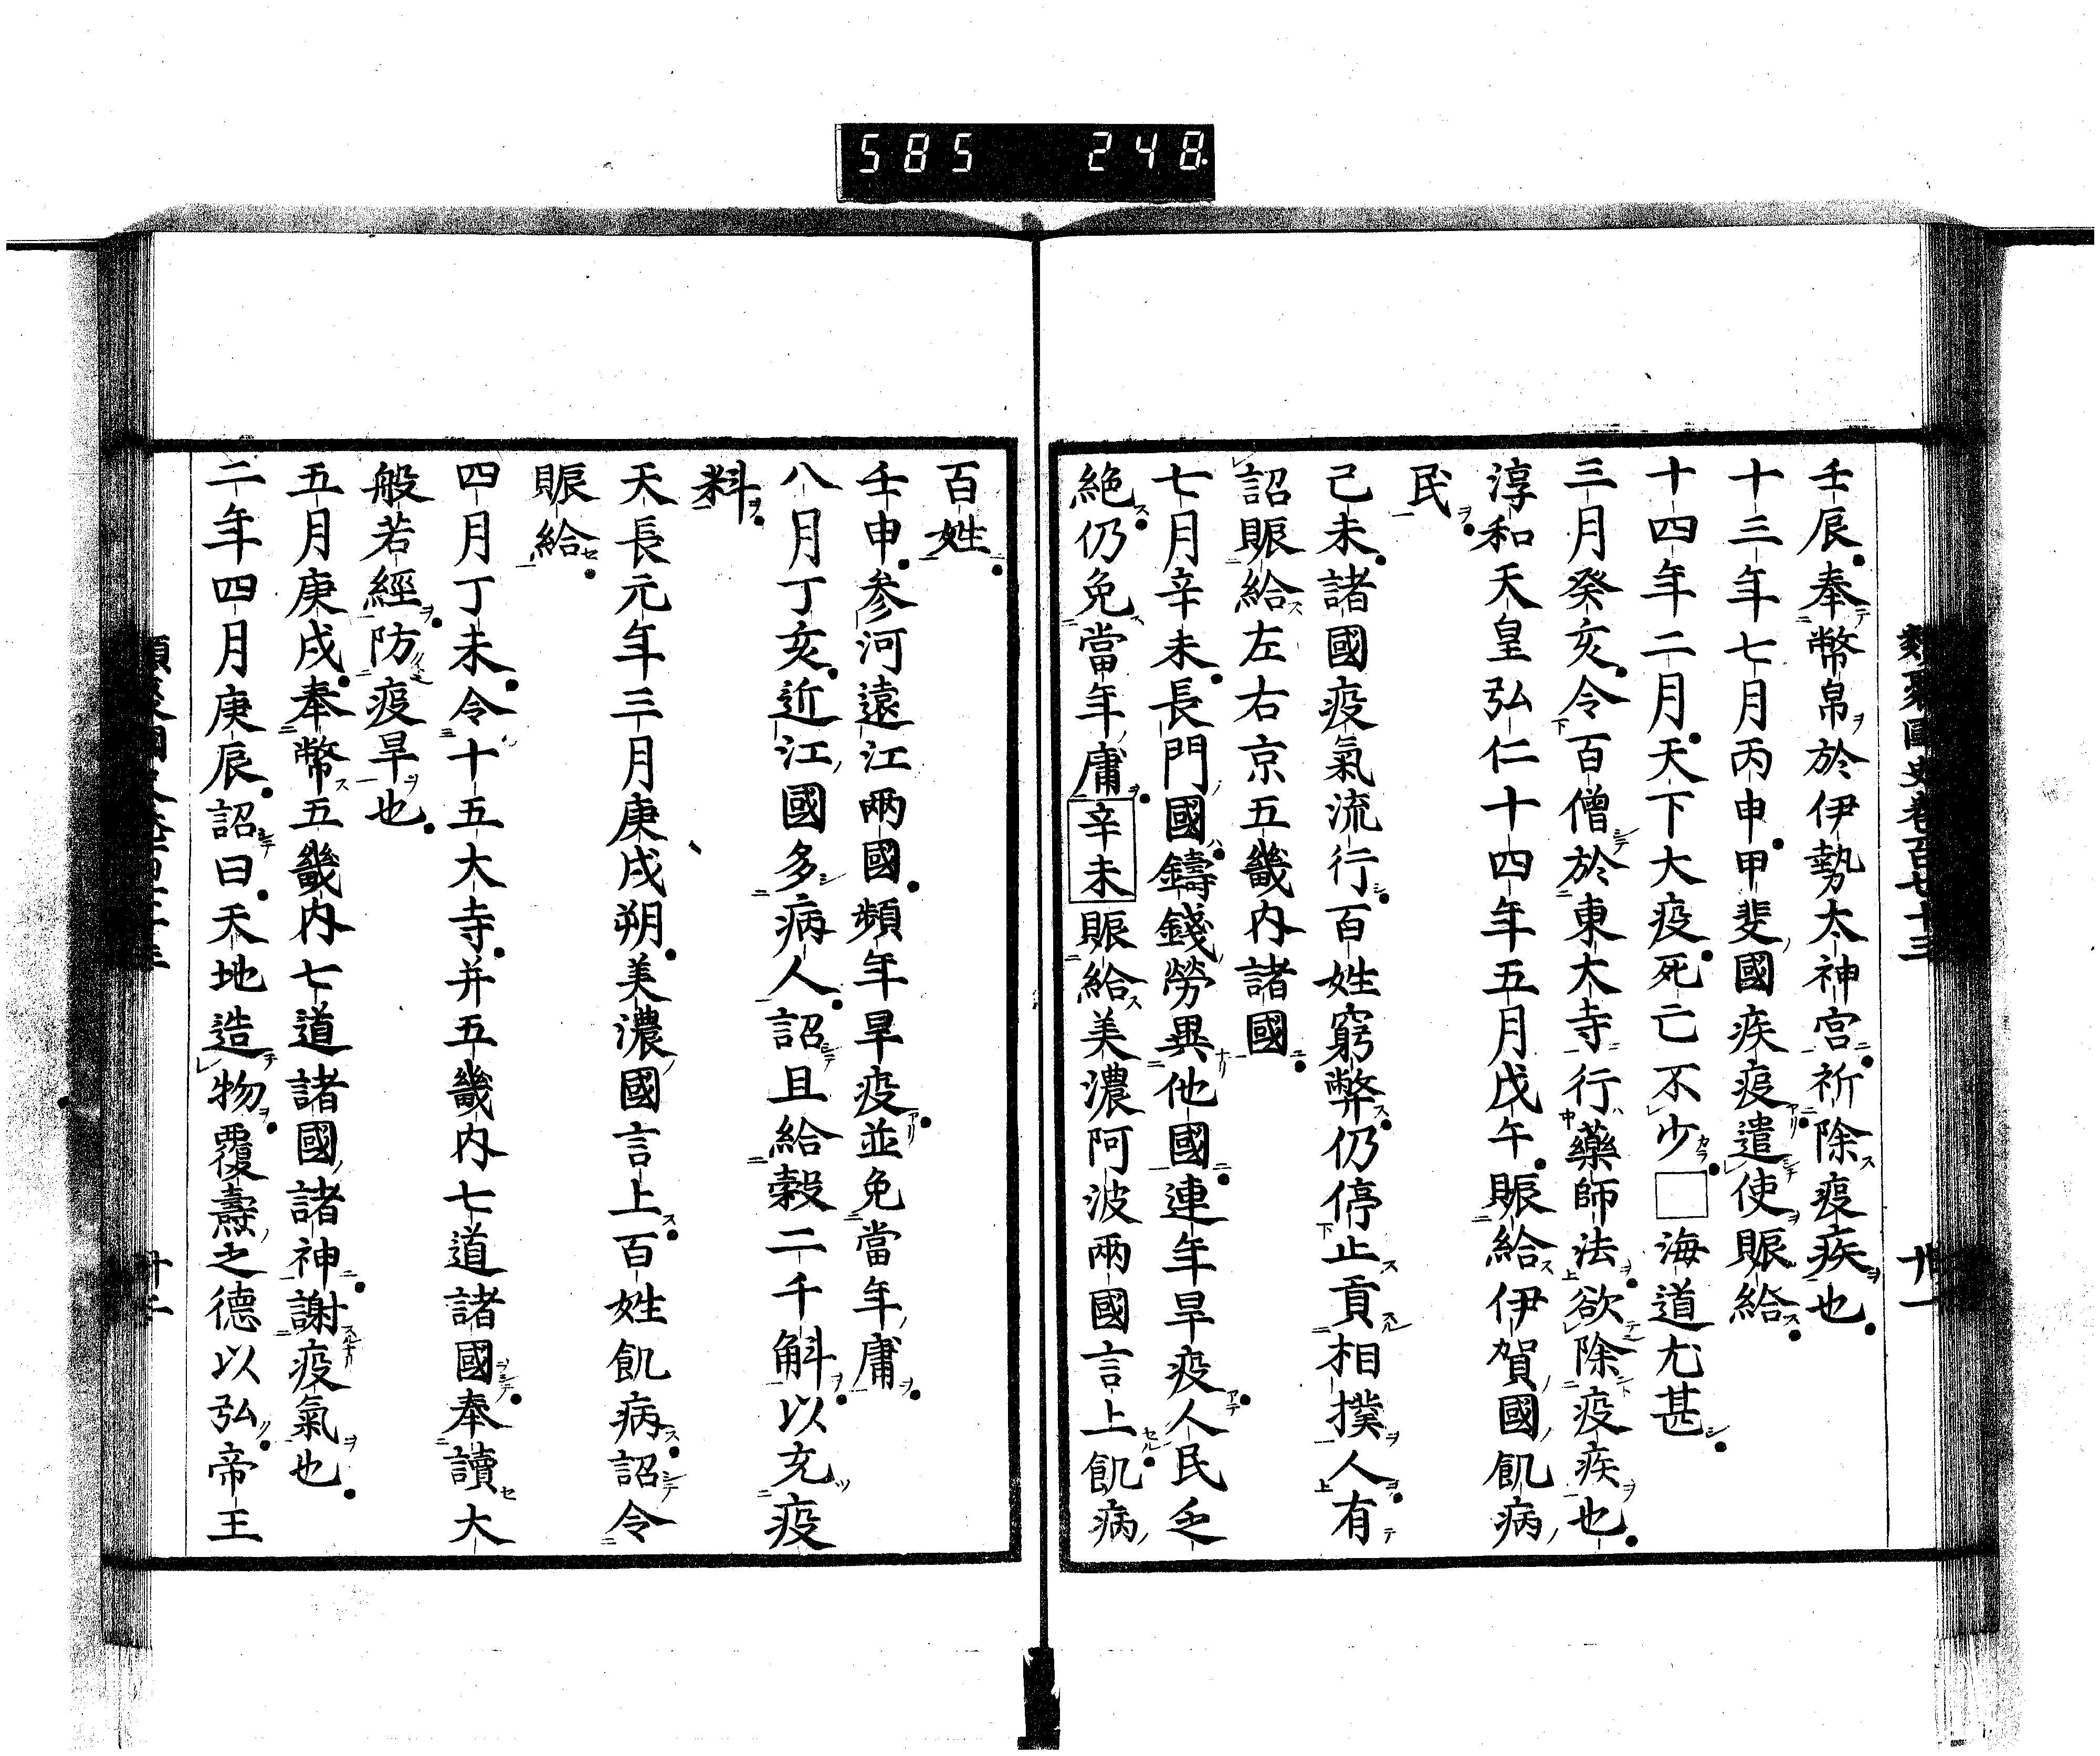 585 248
類聚國史卷百七十三 廿一
壬辰奉幣帛於伊勢太神宮祈除疫疾也
十三年七月丙申甲斐國疾疫遣使賑給
十四年二月天下大疫死亡不少□海道尤甚
三月癸亥令百僧於東大寺行藥師法欲除疫疾也
淳和天皇弘仁十四年五月戊午賑給伊賀國飢病
民
己未諸國疫氣流行百姓窮弊仍停止貢相撲人有
詔賑給左右京五畿內諸國
七月辛未長門國鑄錢勞異他國連年旱疫人民乏
絶仍免當年庸辛未賑給美濃阿波兩國言上飢病
百姓
壬申參河遠江兩國頻年旱疫並免當年庸
八月丁亥近江國多病人詔且給穀二千斛以充疫
料
天長元年三月庚戌朔美濃國言上百姓飢病詔令
賑給
四月丁未令十五大寺并五畿內七道諸國奉讀大
般若經防疫旱也
五月庚戌奉幣五畿內七道諸國諸神謝疫氣也
二年四月庚辰詔曰天地造物覆燾之德以弘帝王